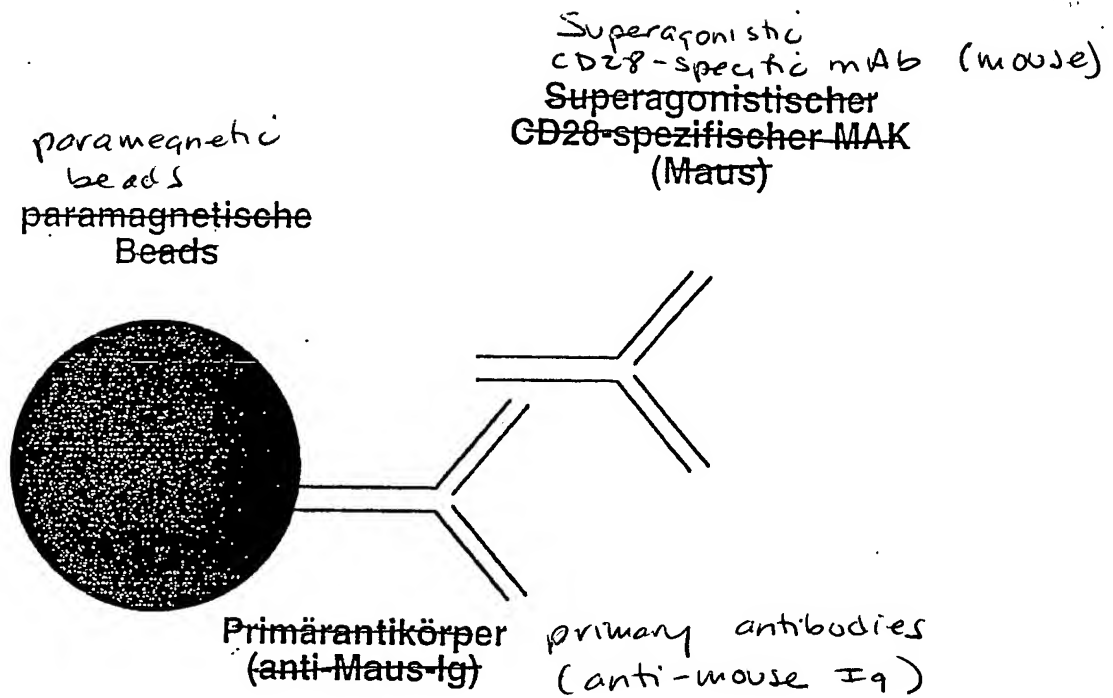 Superagonistic
CD28-specific mAb (mouse)
Superagonistischer
CD28-spezifischer MAK
(Maus)
paramegnetic
beads
paramagnetische
Beads
Primärantikörper primary antibodies
(anti-Maus-Ig) (anti-mouse Ig)